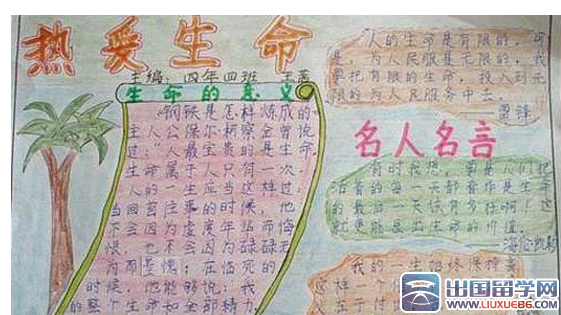 热爱生命
主编：四年四班 王
生命的意义
《钢铁是怎样炼成的》
主人公保尔·柯察金曾说
过：“人最宝贵的是生命，
生命属于人只有一次。
人的一生应当这样度过：
当回首往事的时候，他
不会因为虚度年华而悔
恨，也不会因为碌碌无
为而羞愧；在临死的
时候，他能够说：“我
的整个生命和全部精力，
“人的生命是有限的，可
是，为人民服务是无限的，我
要把有限的生命，投入到无
限的为人民服务中去。
雷锋
名人名言
有时我想，要是人们把
活着的每一天都看作是生命
的最后一天该有多好啊！这
就更能显出生命的价值
海伦·凯勒
我的一生始终保持着
这样一个
在于付
出国留学网
WWW.LIUXUE86.COM